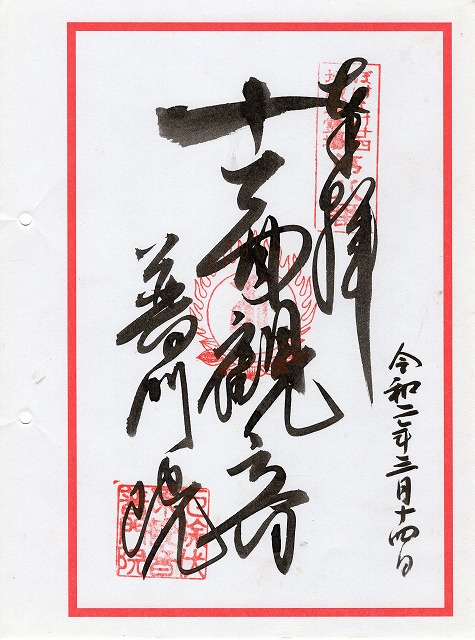 奉拝
令和二年三月十四日
十一面観音
普門院